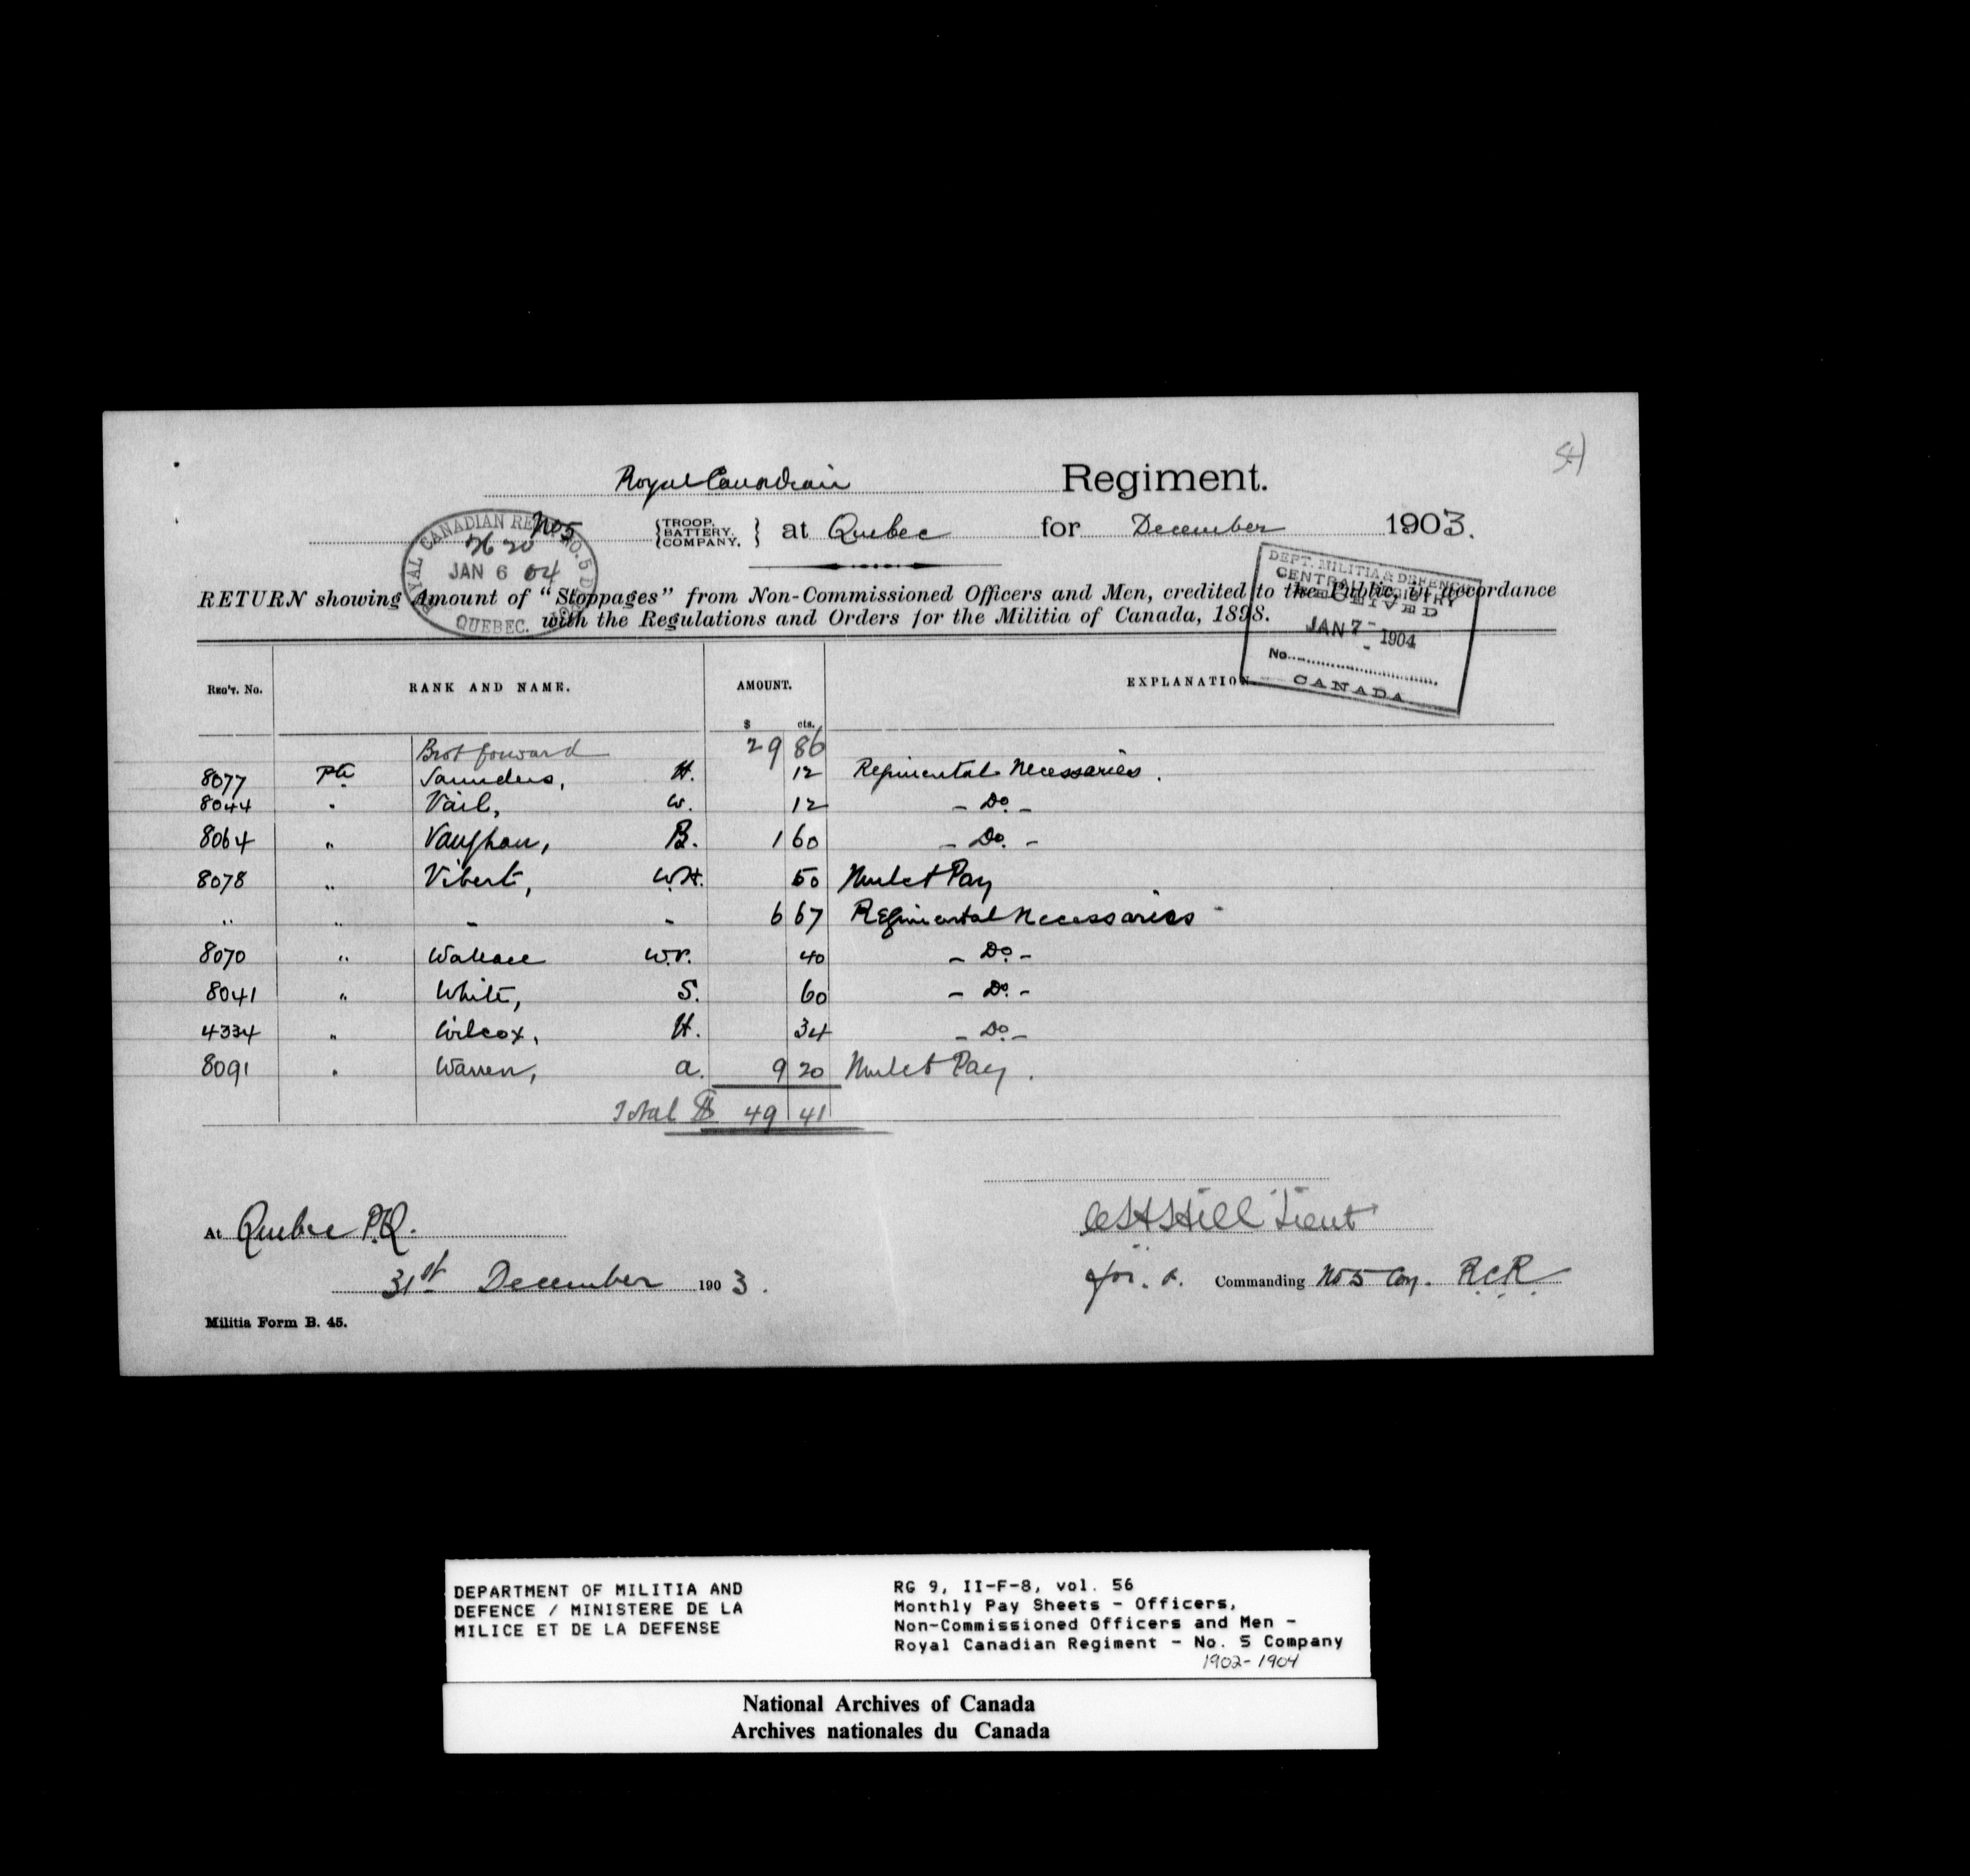 54
Royal Canadian Regiment.
No 5 {TROOP. BATTERY. COMPANY.} at Quebec for December 1903.
ROYAL CANADIAN REGT NO. 5 D
2620
JAN 6 04
QUEBEC.
DEPT. MILITIA & DEFENCE
CENTRAL REGISTRY
RECEIVED
JAN 7 - 1904
No.
CANADA
RETURN showing Amount of "Stoppages" from Non-Commissioned Officers and Men, credited to the Public, in accordance
with the Regulations and Orders for the Militia of Canada, 1898.
REG'T. No. RANK AND NAME. AMOUNT. EXPLANATION
$ cts.
Brot forward 29 86
8077 Pte Saunders, H. 12 Regimental Necessaries.
8044 " Vail, W. 12 - Do. -
8064 " Vaughan, B. 1 60 - Do. -
8078 " Vibert, W.H. 50 Mulct Pay
" " - - 6 67 Regimental Necessaries -
8070 " Wallace W.V. 40 - Do. -
8041 " White, S. 60 - Do. -
4334 " Wilcox, H. 34 - Do. -
8091 " Warren, A. 9 20 Mulct Pay.
Total $ 49 41
At Quebec P.Q.
31st December 1903.
Hill Lieut
for Commanding No 5 Coy. R.C.R
Militia Form B. 45.
DEPARTMENT OF MILITIA AND
DEFENCE / MINISTERE DE LA
MILICE ET DE LA DEFENSE
RG 9, II-F-8, vol. 56
Monthly Pay Sheets - Officers,
Non-Commissioned Officers and Men -
Royal Canadian Regiment - No. 5 Company
1902-1904
National Archives of Canada
Archives nationales du Canada